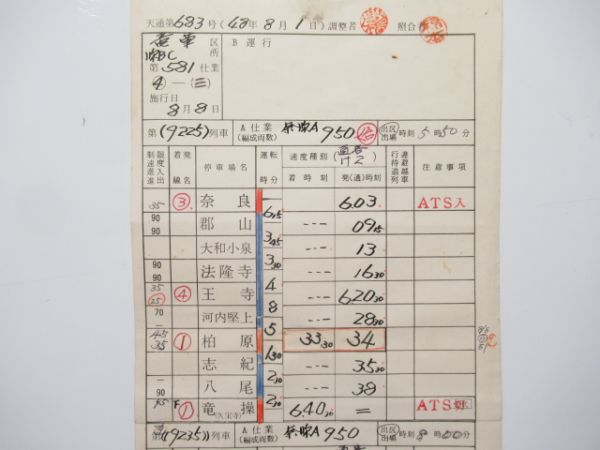 天通第683号(48年8月1日)調整者 照合者
区所 B運行
第581仕業
④—(三)
施行日
8月8日
第(9225)列車 A仕業(編成両数) 950 出区 出場 時刻5時50分
制限速度進入進出 着発線名 停車場名 運転時分 速度種別 着時刻 発(通)時刻 行違待避追越列車 注意事項
35 ③ 奈良 603 ATS入
6 15
90 90 郡山 --- 09 15
3 45
大和小泉 --- 13
3 30
90 90 法隆寺 --- 16 30
4
35 25 ④ 王寺 --- 620 30
8
70 河内堅上 --- 28 30
5
45 35 ① 柏原 33 30 34
1 30
志紀 --- 35 30
2 30
90 八尾 --- 38
2 30
45 ① 竜操 (久宝寺) 640 30 = ATS切
第(9235)列車 A仕業(編成両数) 950 出区 出場 時刻8時00分